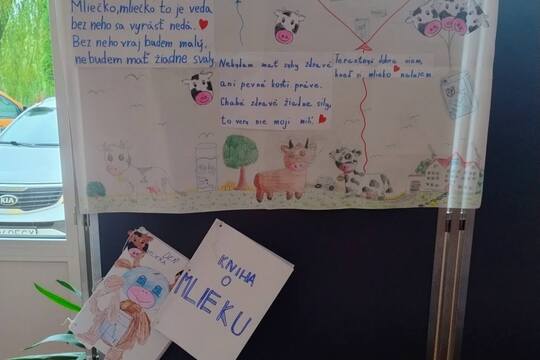 Mliečko, mliečko to je veda
bez neho sa vyrásť nedá.
Bez neho vraj budem malý,
nebudem mať žiadne svaly.
Nebudem mať zuby zdravé
ani pevné kosti práve.
Chabé zdravé žiadne sily,
to veru nie moji milí
dobre viem,
mlieko nalejem.
KNIHA
O
MLIEKU
DEŇ
MLIEKA
KIA